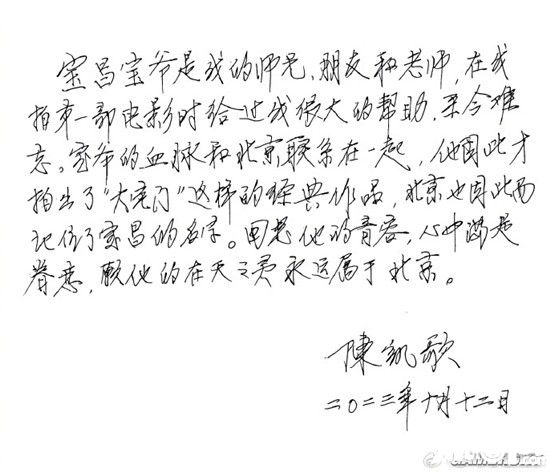 宝昌宝爷是我的师兄、朋友和老师,在我
拍第一部电影时给过我很大的帮助,至今难
忘。宝爷的血脉和北京联系在一起,他因此才
拍出了“大宅门”这样的经典作品,北京也因此而
记住了宝昌的名字。思他的音容,心中满是
眷恋,愿他的在天之灵永远属于北京。
陳凯歌
二〇二三年十月十二日